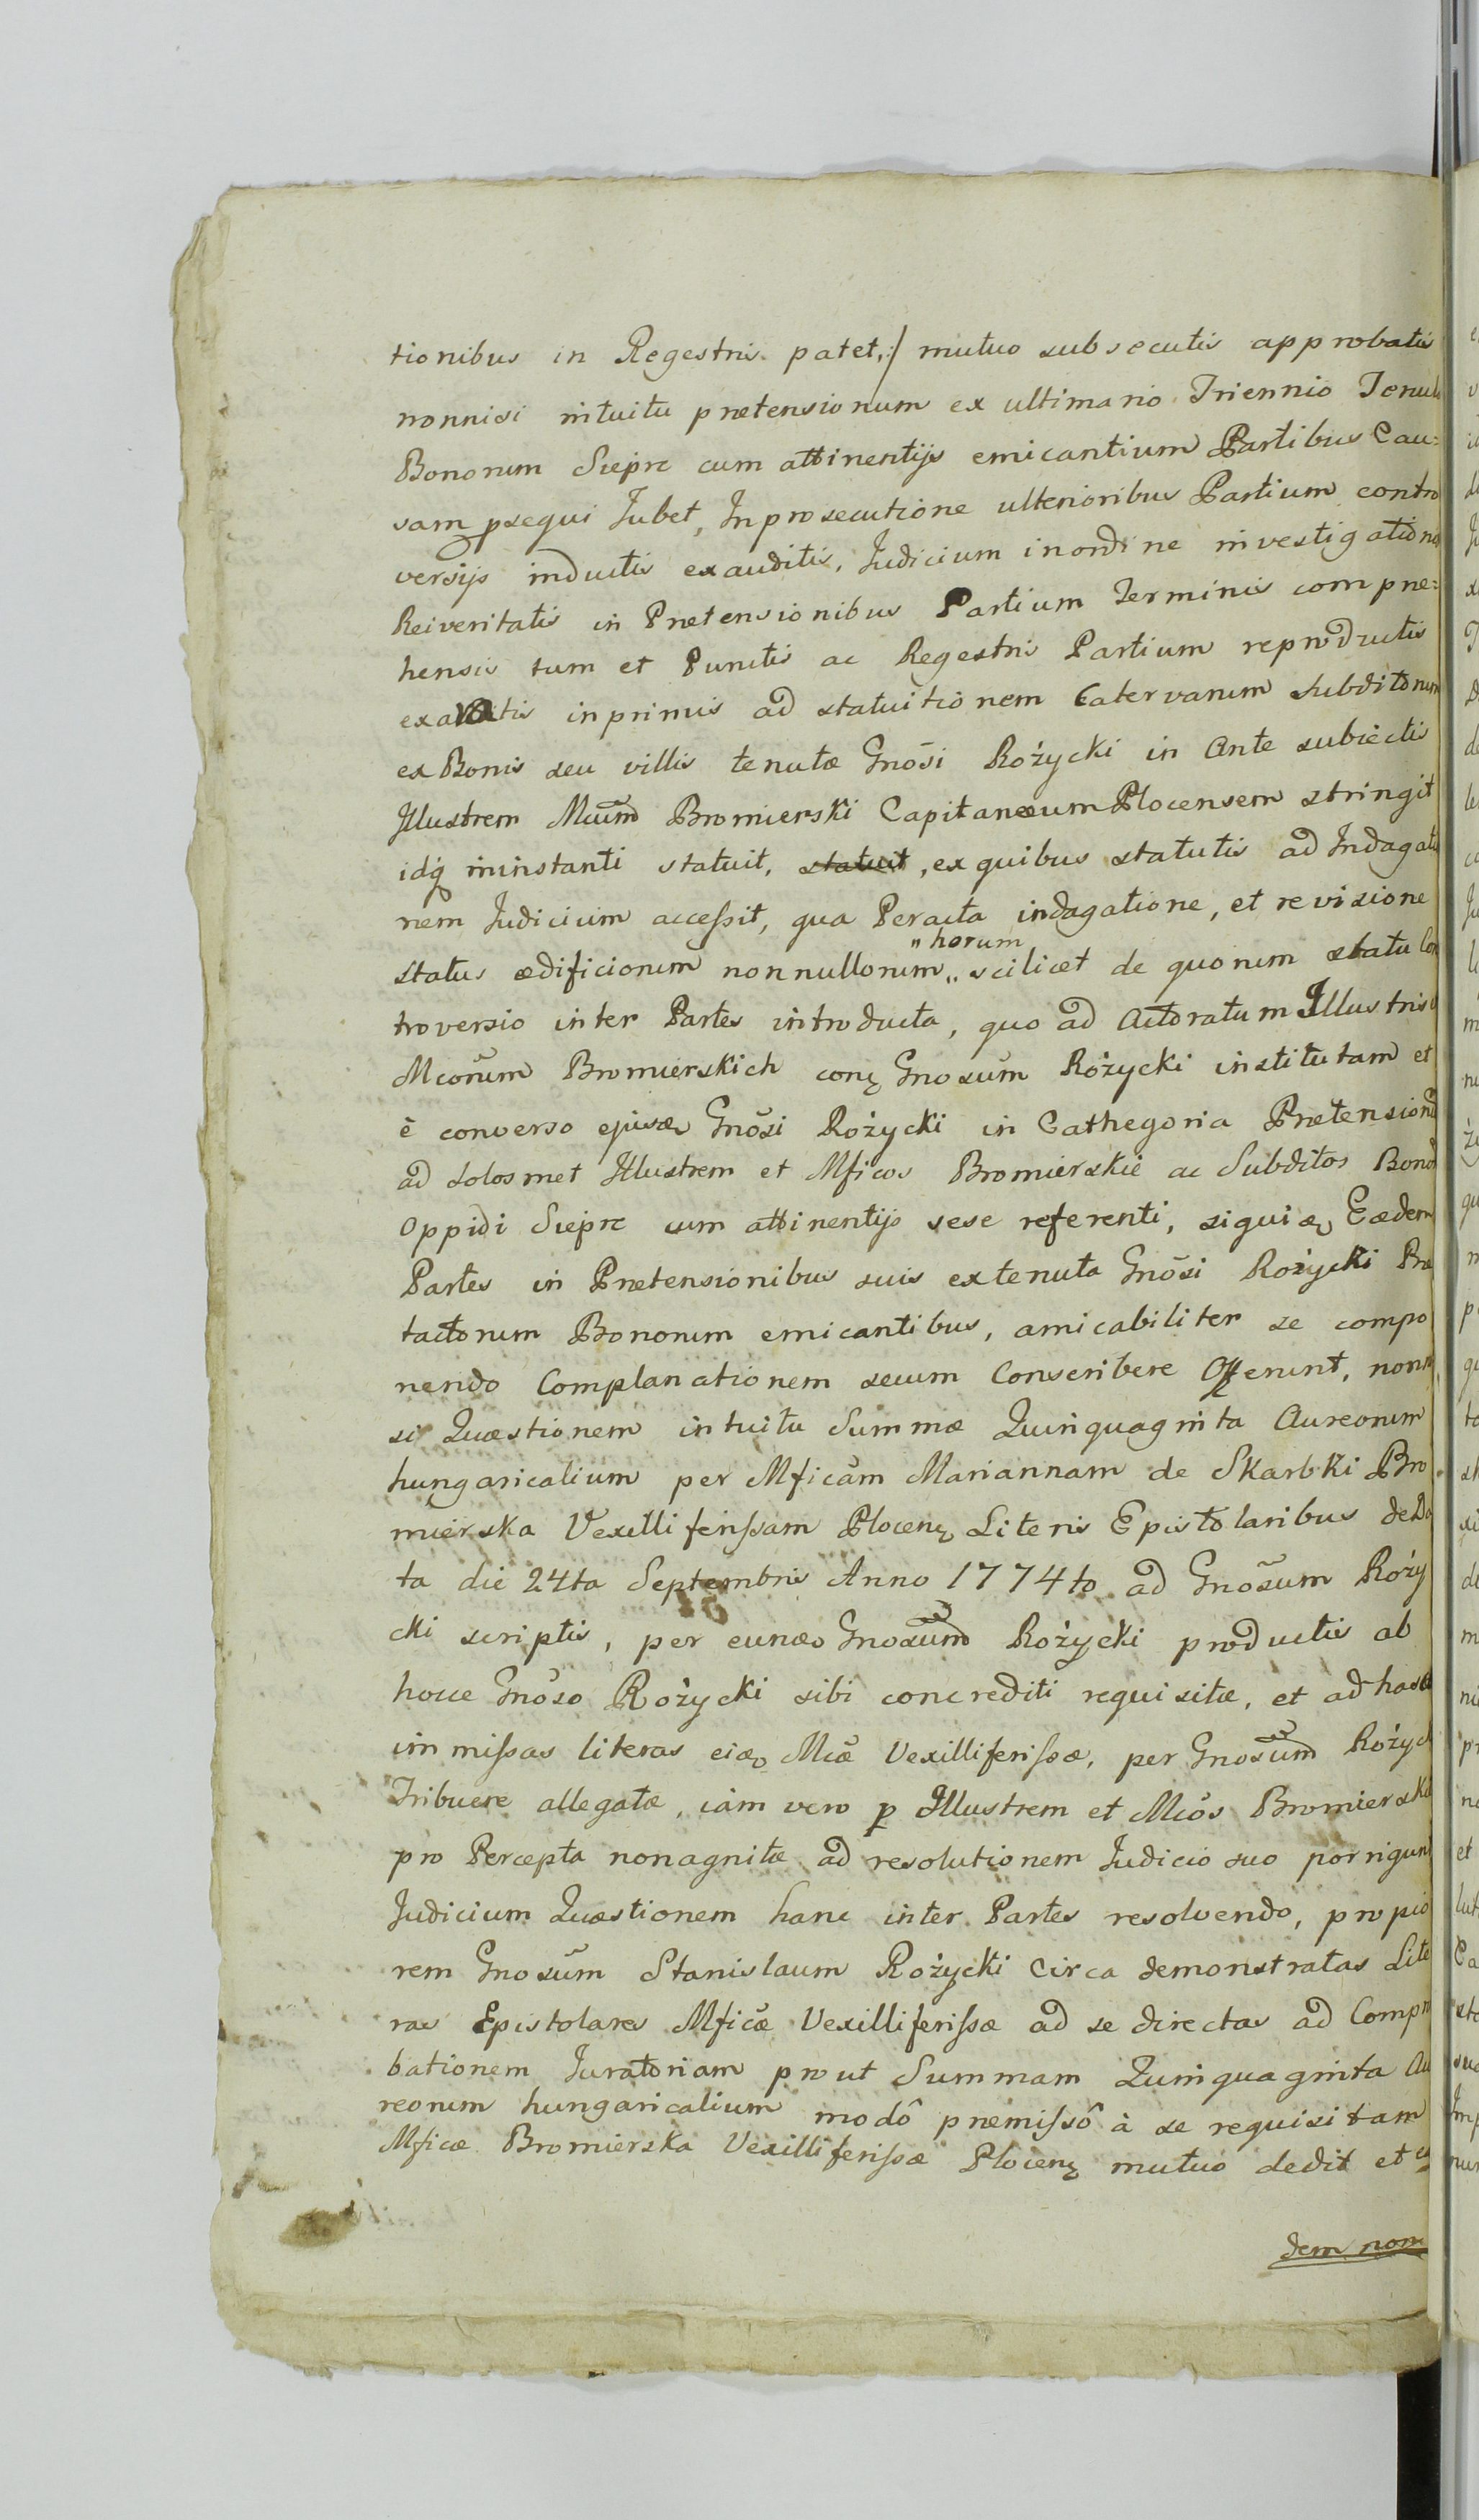 tionibus in Regestris patet,:/ mutuo subsecutis approbatis
nonnisi intuitu prætensionum ex ultimario Triennio Tenut
Bonorum Sieprc cum attinentijs emicantium Partibus Cau=
sam psequi Jubet, In prosecutione ulterioribus Partium contro
versijs inductis exauditis, Judicium inordine investigationis
Rei veritatis in Prætensionibus Partium Terminis compræ=
hensis tum et Punctis ac Regestris Partium reproductis
inprimis ad statuitionem Catervarum Subditorum
ex Bonis seu villis tenutæ Gnõsi Rożycki in Ante subiectis
Illustrem Mcum Bromierski Capitanæum Plocensem stringit
idq̃ ininstanti statuit, statuit, ex quibus statutis ad Indagatio
nem Judicium accessit, qua Peracta indagatione, et revisione
status ædificiorum nonnullorum „ scilicet de quorum statu Con
"horum
troversio inter Partes introducta, quo ad Actoratum Illustris
Mcorum Bromierskich conț Gnosum Rożycki institutam et
è converso ejusæ Gnõsi Rożycki in Cathegoria Prætension
ad solosmet Illustrem et Mficos Bromierskie ac Subditos Bonor
Oppidi Sieprc cum attinentijs sese referenti, siquiæ Eædem
Partes in Prætensionibus suis extenuta Gnõsi Rożycki Præ
tactorum Bonorum emicantibus, amicabiliter se compo
nendo Complanationem secum Conscribere Offerunt, nonni
si Quæstionem intuitu Summæ Quinquaginta Aureorum
hungaricalium per Mficãm Mariannam de Skarbki Bro
mierska Vexilliferissam Plocenț Literis Epistolaribus de Da
ta die 24ta Septembris Anno 1774to ad Gnosum Roży
cki scriptis, per eunæ Gnosum Rożycki productis ab
hocce Gnõso Rożycki sibi concrediti requisitæ, et ad hasce
immissas literas eiæ Mcæ Vexilliferissæ, per Gnosum Rożyck
Tribuere allegatæ, iàm vero p Illustrem et Mcõs Bromierskie
pro Percepta nonagnitæ ad resolutionem Judicio suo porrigunt
Judicium Quæstionem hanc inter Partes resolvendo, propio
rem Gnosũm Stanislaum Rożycki Circa demonstratas Lite
ras Epistolares Mficæ Vexilliferissæ ad se directas ad Compro
bationem Juratoriam prout Summam Quinquaginta Au
reorum hungaricalium modô præmissô à se requisitam
Mficæ Bromierska Vexilliferissæ Plocenț mutuo dedit et ea
dem nom